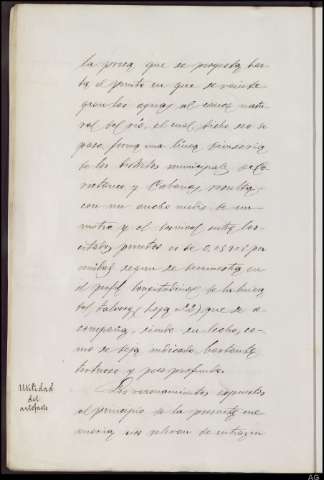 la presa que se proyecta has-
ta el punto en que se reinte-
gran las aguas al cauce natu-
ral del rio, el cual dicho sea de
paso, forma una línea divisoria
de los distritos municipales de
y Cabanas, resulta,
con un ancho medio de un
metro y el desnivel entre los
citados puntos es de 2,15 m. por
según se demuestra en
el perfil longitudinal de la línea
del talweg (hoja 2ª) que se a-
compaña, siendo su lecho, co-
mo se deja indicado, bastante
tortuoso y poco profundo.
Utilidad
del
artefacto
Los razonamientos expuestos
al principio de la presente me-
moria nos relevan de entrar en
AG